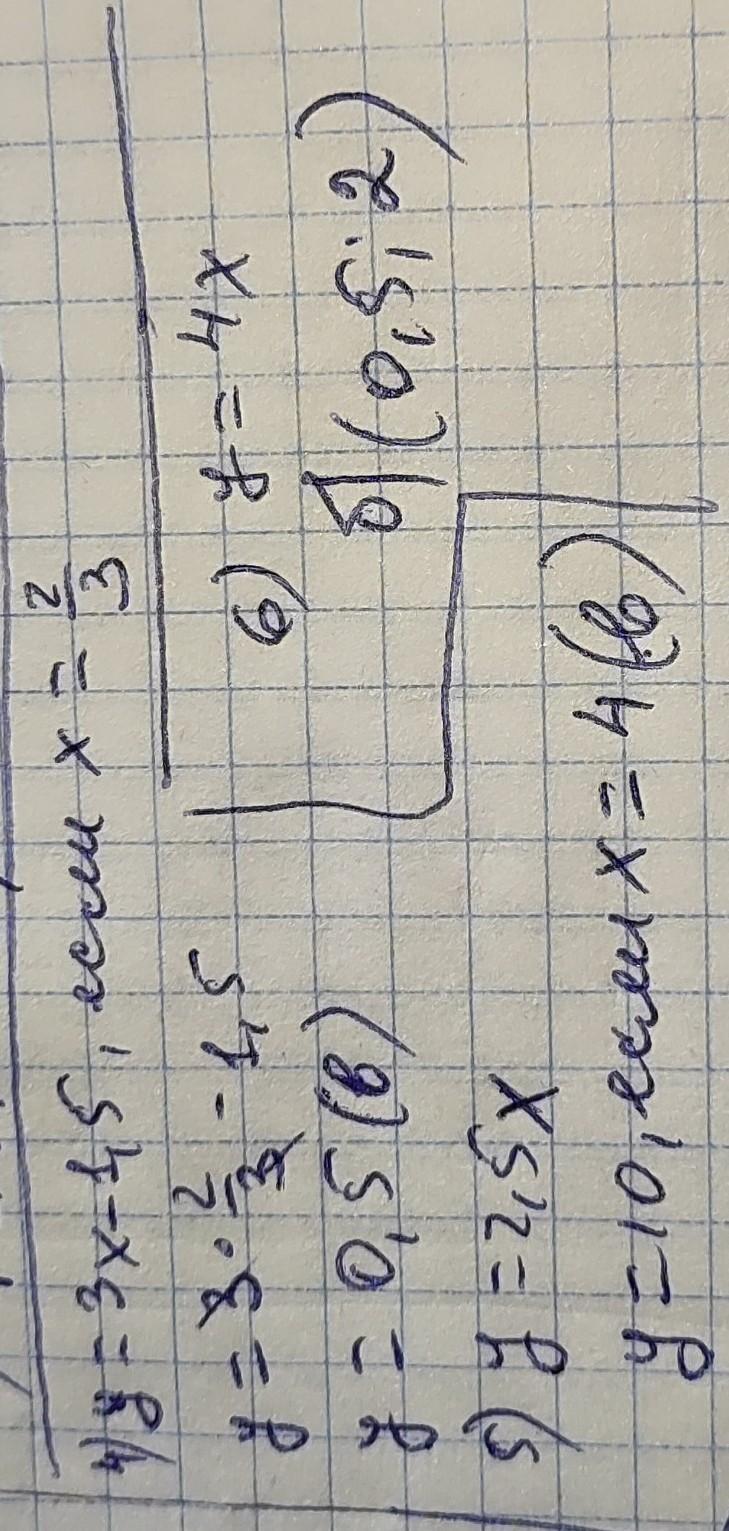 4) y = 3x - 1,5, если x = 2/3
y = 3 · 2/3 - 1,5
y = 0,5 (в)
5) y = 2,5x
y = 10, если x = 4 (в)
6) y = 4x
б) (0,5; 2)